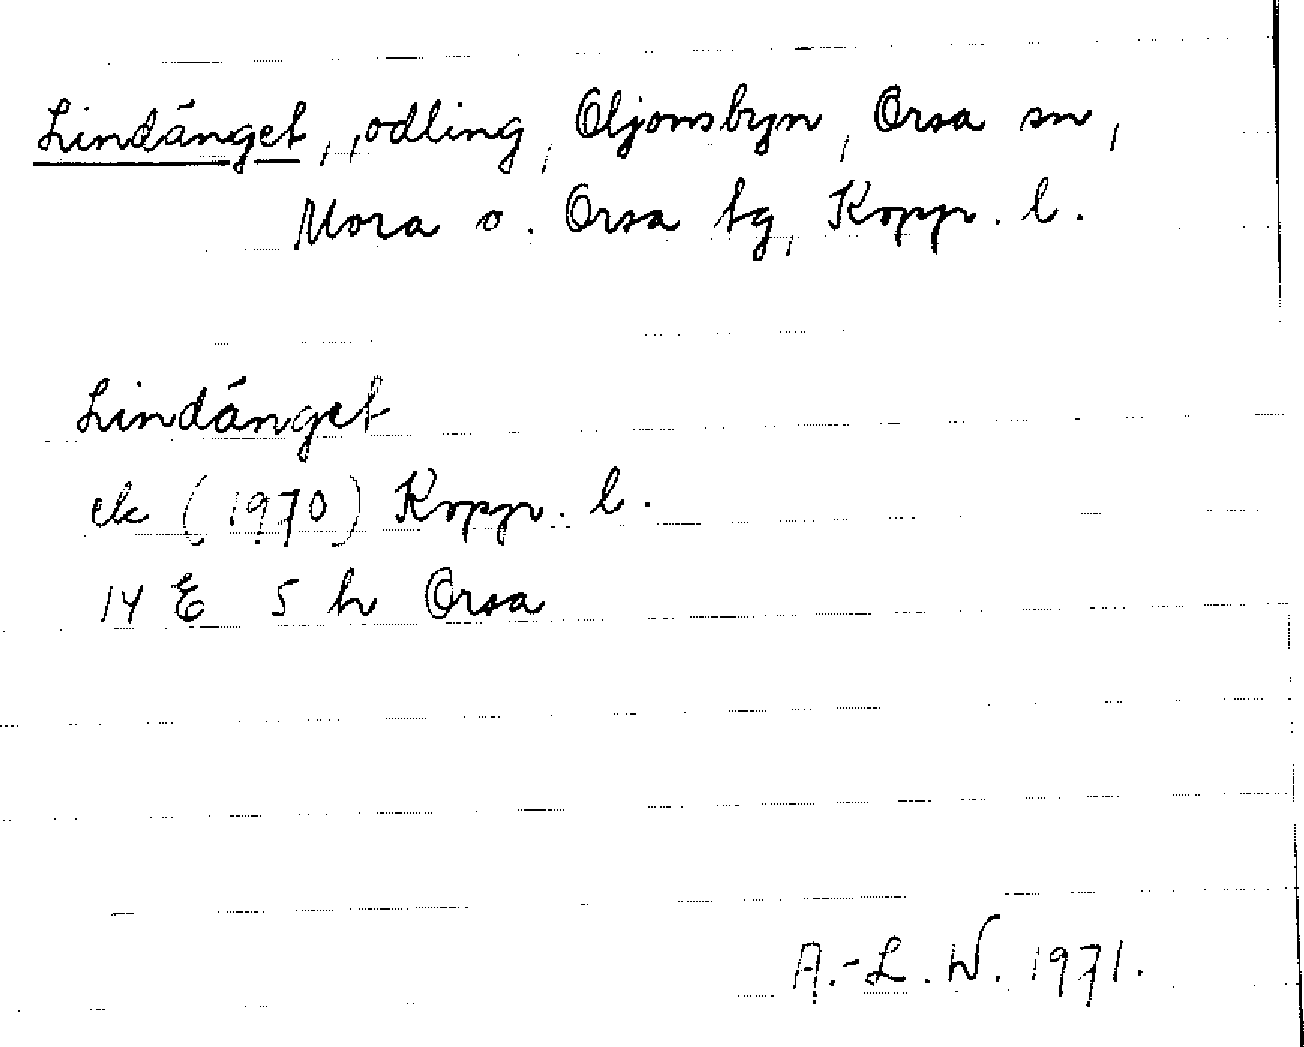 Lindänget, odling, Oljonsbyn, Orsa sn,
Mora o. Orsa tg, Kopp. l.
Lindänget
ek (1970) Kopp. l.
14 E 5 h Orsa
A.-L. W. 1971.